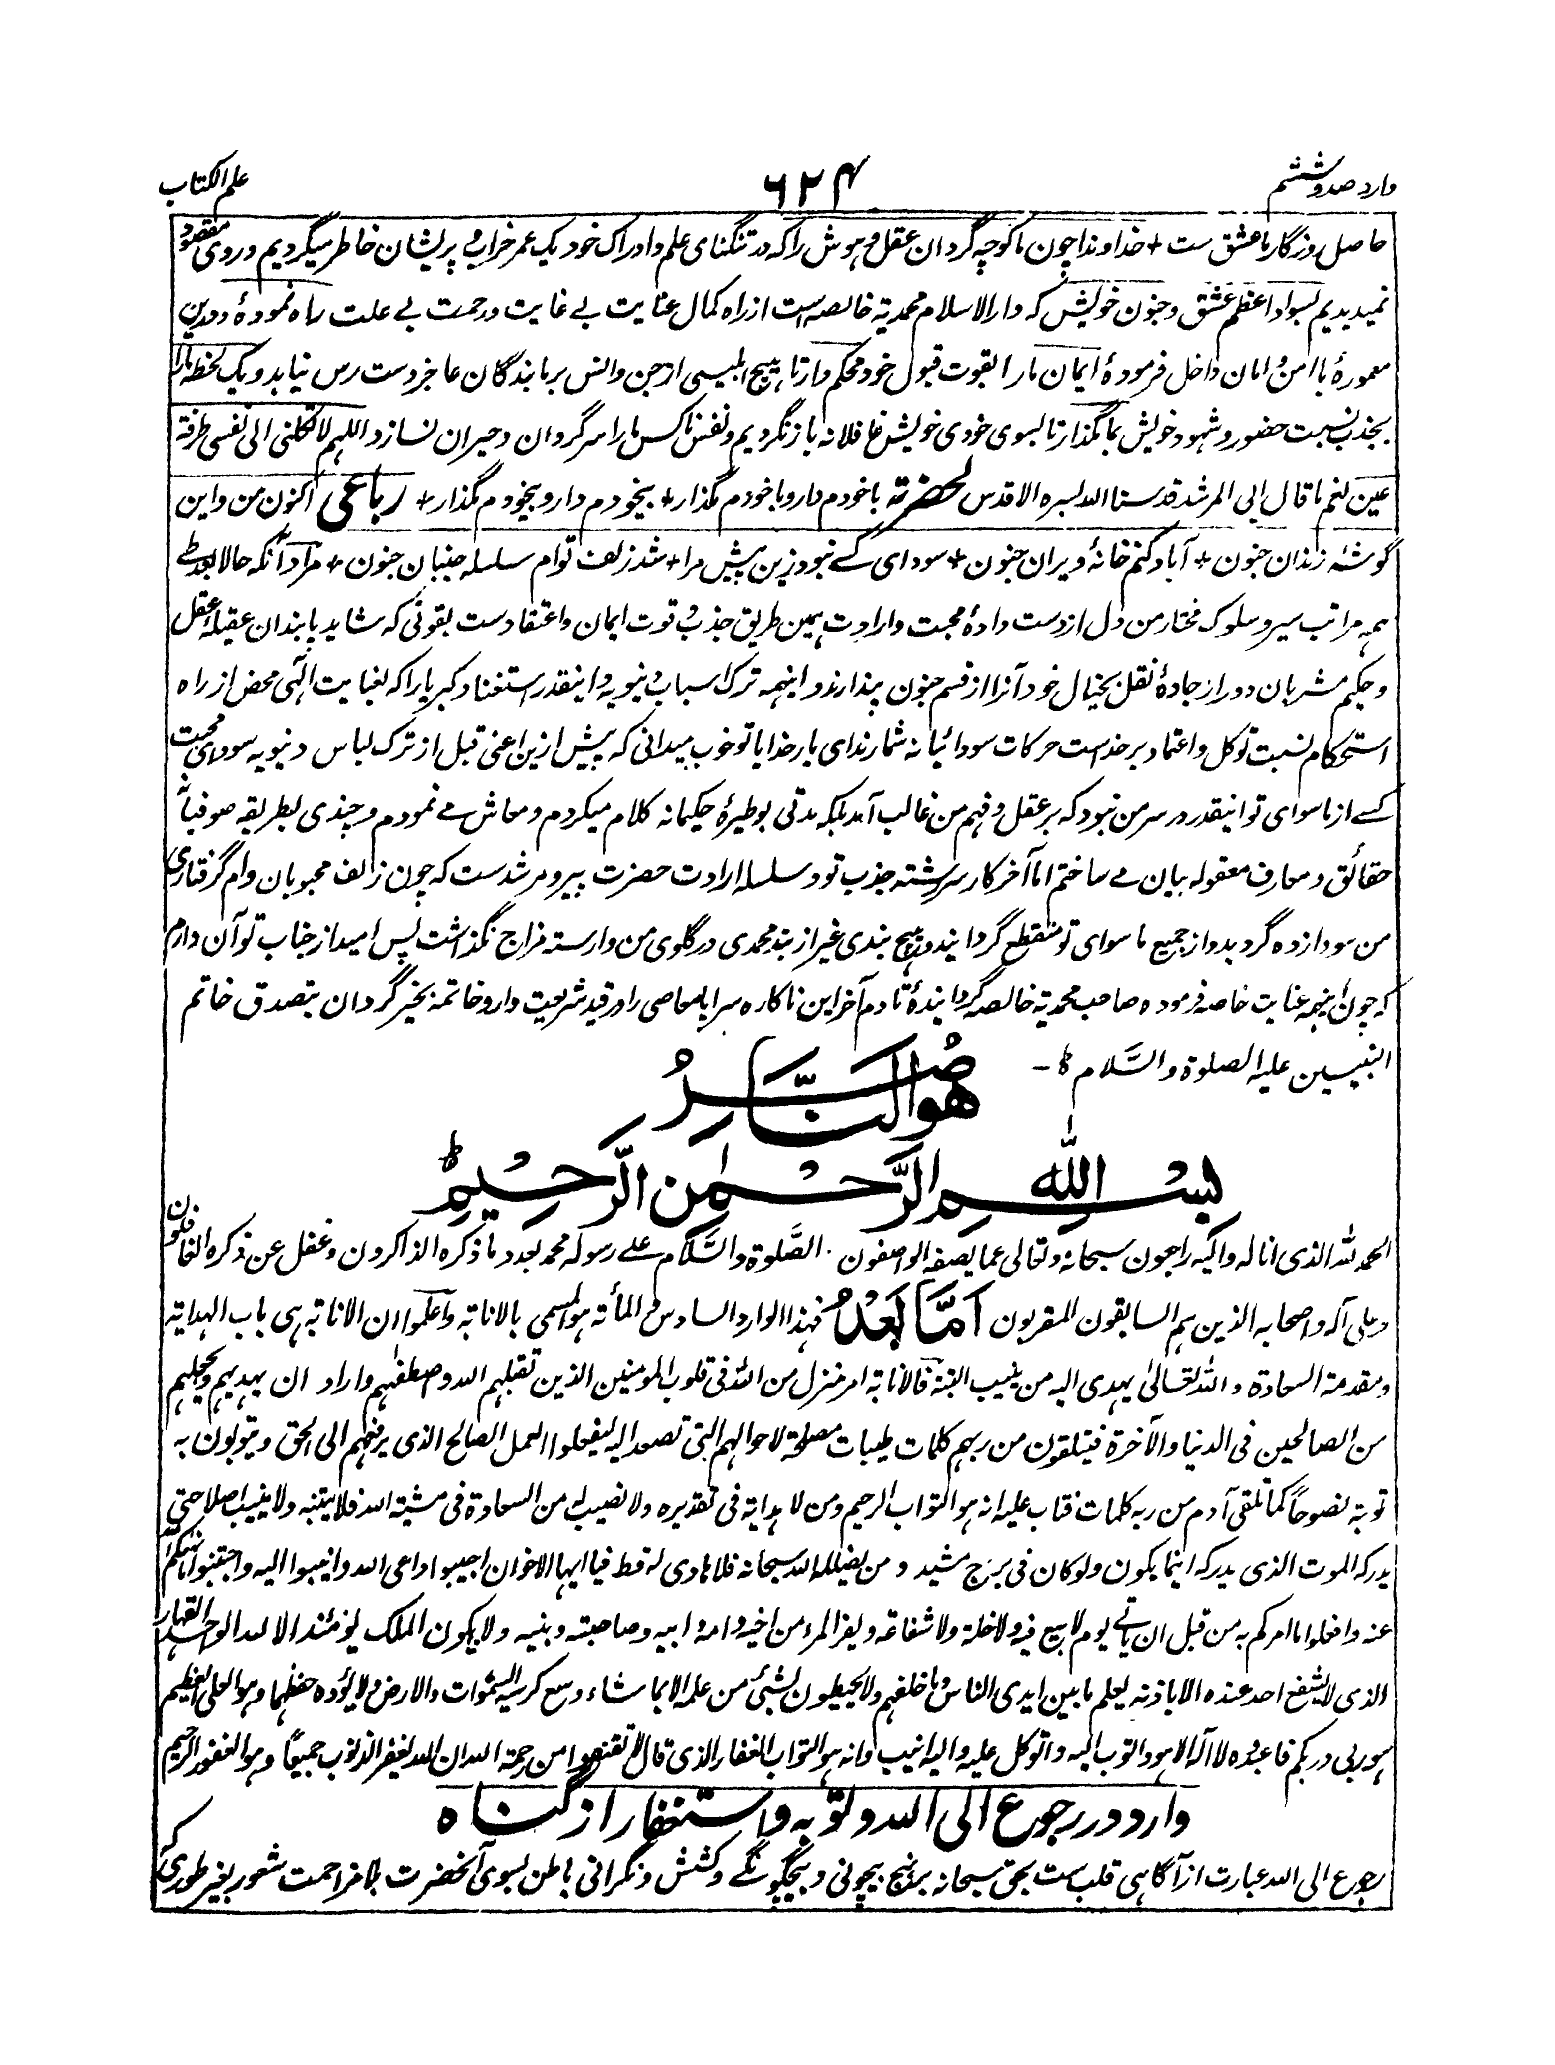 وارد صدو ششم
۶۲۴
علم الکتاب
حاصل روزگار ما عشق ست + خداوندا چون ما کوچه گردان عقل و هوش را که در تنگنای علم و ادراک خود یک عمر خراب و پریشان خاطر میگردیم و روی مقصود
نمیدیدیم بسواد اعظم عشق و جنون خویش که دارالاسلام محمدیه خالصه است از راه کمال عنایت بے غایت و رحمت بے علت راه نمودهٔ و درین
معمورهٔ باامن و امان داخل فرمودهٔ ایمان ما را بقوت قبول خود محکم دار تا هیچ ابلیسی از جن و انس بر ما بندگان عاجز دست رس نیابد و یک لحظه ما را
بجذب نسبت حضور و شهود خویش بما مگذار تا بسوی خودی خویش غافلانه باز نگردیم و نفس ناکس ما را سرگردان و حیران نسازد اللهم لا تکلنی الی نفسی طرفة
عین نعم ما قال ابی المرشد قدسنا الله بسره الاقدس لحضرته باخودم دار و باخودم مگذار + بیخودم دار و بیخودم مگذار + رباعی اکنون من و این
گوشهٔ زندان جنون + آباد کنم خانهٔ ویران جنون + سودای کسے نبود زین پیش مرا + شد زلف توام سلسله جنبان جنون + مراد آنکه حالا بعد طے
همه مراتب سیر و سلوک مختار من دل از دست دادهٔ محبت و ارادت همین طریق جذب و قوت ایمان و اعتقاد ست بقوتی که شاید پابندان عقیلهٔ عقل
و حکیم مشربان دور از جادهٔ نقل بخیال خود آنرا از قسم جنون پندارند و اینهمه ترک اسباب دنیویه و اینقدر استغنا و کبریا را که بعنایت الٰهی محض از راه
استحکام نسبت توکل و اعتماد بر خداست حرکات سودائیانه شمارند ای بار خدایا تو خوب میدانی که پیش ازین اعنی قبل از ترک لباس دنیویه سودای محبت
کسے از ماسوای تو اینقدر در سر من نبود که بر عقل و فهم من غالب آمد بلکه مدتی بوطیرهٔ حکیمانه کلام میکردم و معاش مے نمودم و چندی بطریقه صوفیانه
حقائق و معارف معقوله بیان مے ساختم اما آخر کار سر رشته جذب تو و سلسله ارادت حضرت پیر و مرشدست که چون زلف محبوبان دام گرفتاری
من سودا زده گردید و از جمیع ماسوای تو منقطع گردانید و هیچ بندی غیر از بند محمدی در گلوی من وارسته مزاج نگذاشت پس امید از جناب تو آن دارم
که چون اینهمه عنایت خاصه فرموده صاحب محمدیه خالصه گردانیدهٔ تا دم آخر این ناکاره سراپا معاصی را در قید شریعت دار و خاتمه بخیر گردان بتصدق خاتم
النبیین علیه الصلوة والسَّلام
هُوَ النَّاصِرُ
بِسْمِ اللهِ الرَّحْمٰنِ الرَّحِیْمِ ط
الحمد لله الذی انا له و الیه راجعون سبحانه و تعالی عما یصفه الواصفون ۰ الصَّلوة والسَّلام علے رسوله محمد بعدد ما ذکره الذاکرون و غفل عن ذکره الغافلون
و علی آله و اصحابه الذین هم السابقون المقربون اَمَّا بَعْدُ فهذا الوارد السادس و المأته هو المسمی بالانابة و اعلموا ان الانابة هی باب الهدایة
و مقدمة السعادة و الله تعالیٰ یهدی الیه من ینیب البتة فالانابة امر منزل من الله فی قلوب المومنین الذین تقبلهم الله و اصطفٰهم و اراد ان یهدیهم و یجعلهم
من الصالحین فی الدنیا و الآخرة فیتلقون من ربهم کلمات طیبات مصلحة لاحوالهم التی تصعد الیه لیفعلوا العمل الصالح الذی یرفعهم الی الحق و یتوبون به
توبة نصوحاً کما تلقی آدم من ربه کلمات فتاب علیه انه هو التواب الرحیم و من لا هدایة فی تقدیره و لا نصیب له من السعادة فی مشیة الله فلا یتنبه و لا ینیب اصلا حتی
یدرکه الموت الذی یدرکه اینما یکون و لو کان فی برج مشید و من یضلل الله سبحانه فلا هادی له قط فیا ایها الاخوان اجیبوا داعی الله و انیبوا الیه و اجتنبوا ما نهٰکم
عنه و افعلوا ما امرکم به من قبل ان یاتے یوم لا بیع فیه و لا خلة و لا شفاعة و یفر المرء من اخیه و امه و ابیه و صاحبته و بنیه و لا یکون الملک یومئذ الا لله الواحد القهار
الذی لا یشفع احد عنده الا باذنه یعلم ما بین ایدی الناس و ما خلفهم و لا یحیطون بشیٔ من علمه الا بما شاء وسع کرسیه السموات و الارض و لا یؤده حفظهما و هو العلی العظیم
هو ربی و ربکم فاعبدوه لا اله الا هو و اتوب الیه و اتوکل علیه و الیه انیب و انه هو التواب الغفار الذی قال لا تقنطوا من رحمة الله ان الله یغفر الذنوب جمیعًا و هو الغفور الرحیم
وارد در رجوع الی الله و توبه و استغفار از گناه
رجوع الی الله عبارت از آگاهی قلب ست بحق سبحانه بر نهج بیچونی و بیچگونگے و کشش و نگرانی باطن بسوی آنحضرت بلا مزاحمت شعور بغیر طوری که